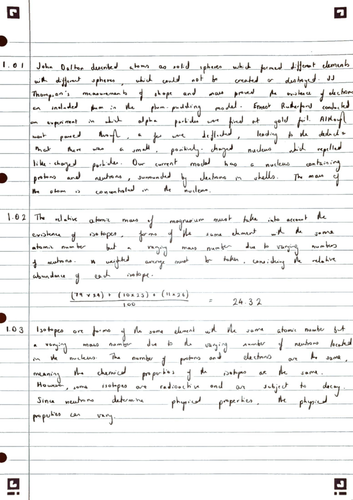 1.01 John Dalton described atoms as solid spheres which formed different elements
with different spheres, which could not be created or destroyed. JJ
Thompson's measurements of shape and mass proved the existence of electrons
an included them in the plum-pudding model. Ernest Rutherford conducted
an experiment in which alpha particles were fired at gold foil. Although
most passed through, a few were deflected, leading to the
that there was a small, positively-charged nucleus which repelled
like-charged particles. Our current model has a nucleus containing
protons and neutrons, surrounded by electrons in shells. The mass of
the atom is concentrated in the nucleus.
1.02 The relative atomic mass of magnesium must take into account the
existence of isotopes, forms of the same element with the same
atomic number but a varying mass number due to varying numbers
of neutrons. A weighted average must be taken, considering the relative
abundance of each isotope.
(79 × 24) + (10×25) + (11×26)
100
= 24.32
1.03 Isotopes are forms of the same element with the same atomic number but
a varying mass number due to the varying number of neutrons located
in the nucleus. The number of protons and electrons are the same,
meaning the chemical properties of the isotopes are the same.
However, some isotopes are radioactive and are subject to decay.
Since neutrons determine physical properties, the physical
properties can vary.